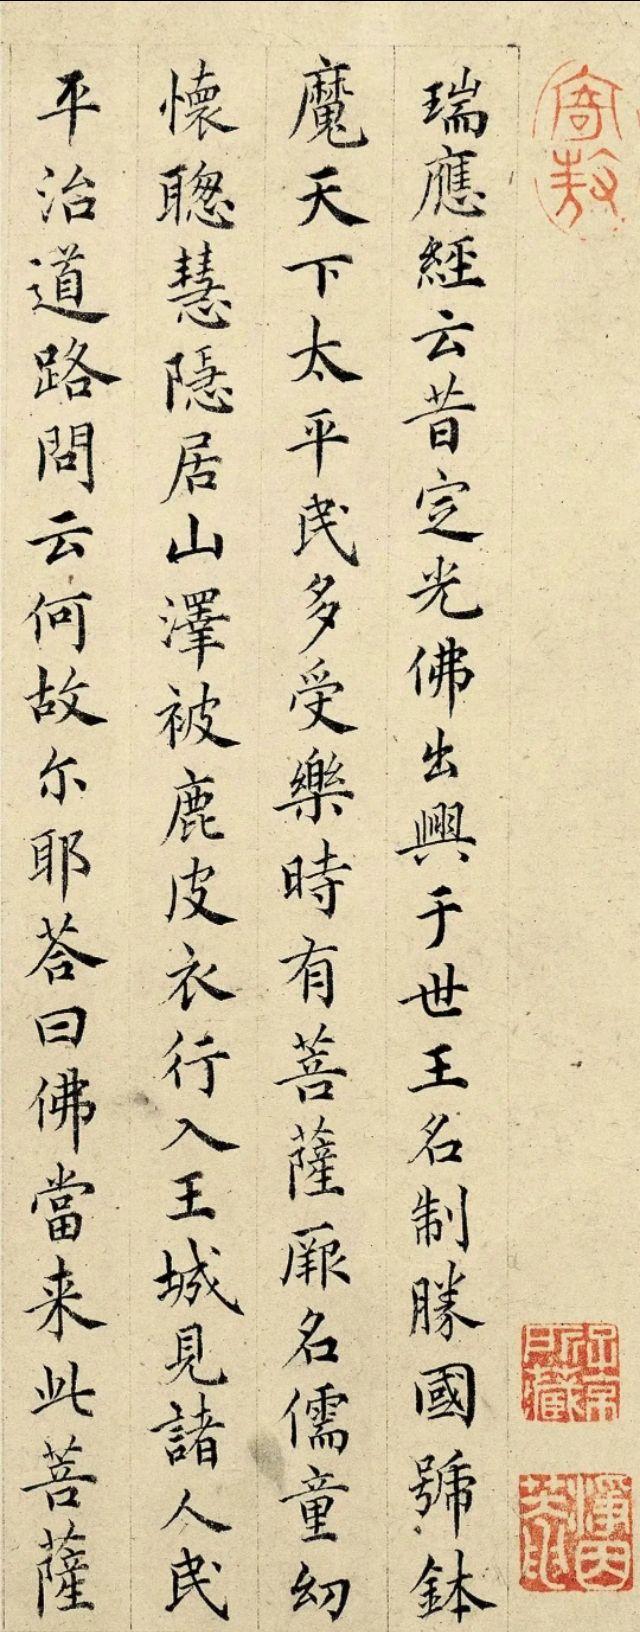 瑞應經云昔定光佛出興于世王名制勝國號鉢
魔天下太平民多受樂時有菩薩厥名儒童幼
懷聰慧隱居山澤被鹿皮衣行入王城見諸人民
平治道路問云何故尓耶荅曰佛當来此菩薩